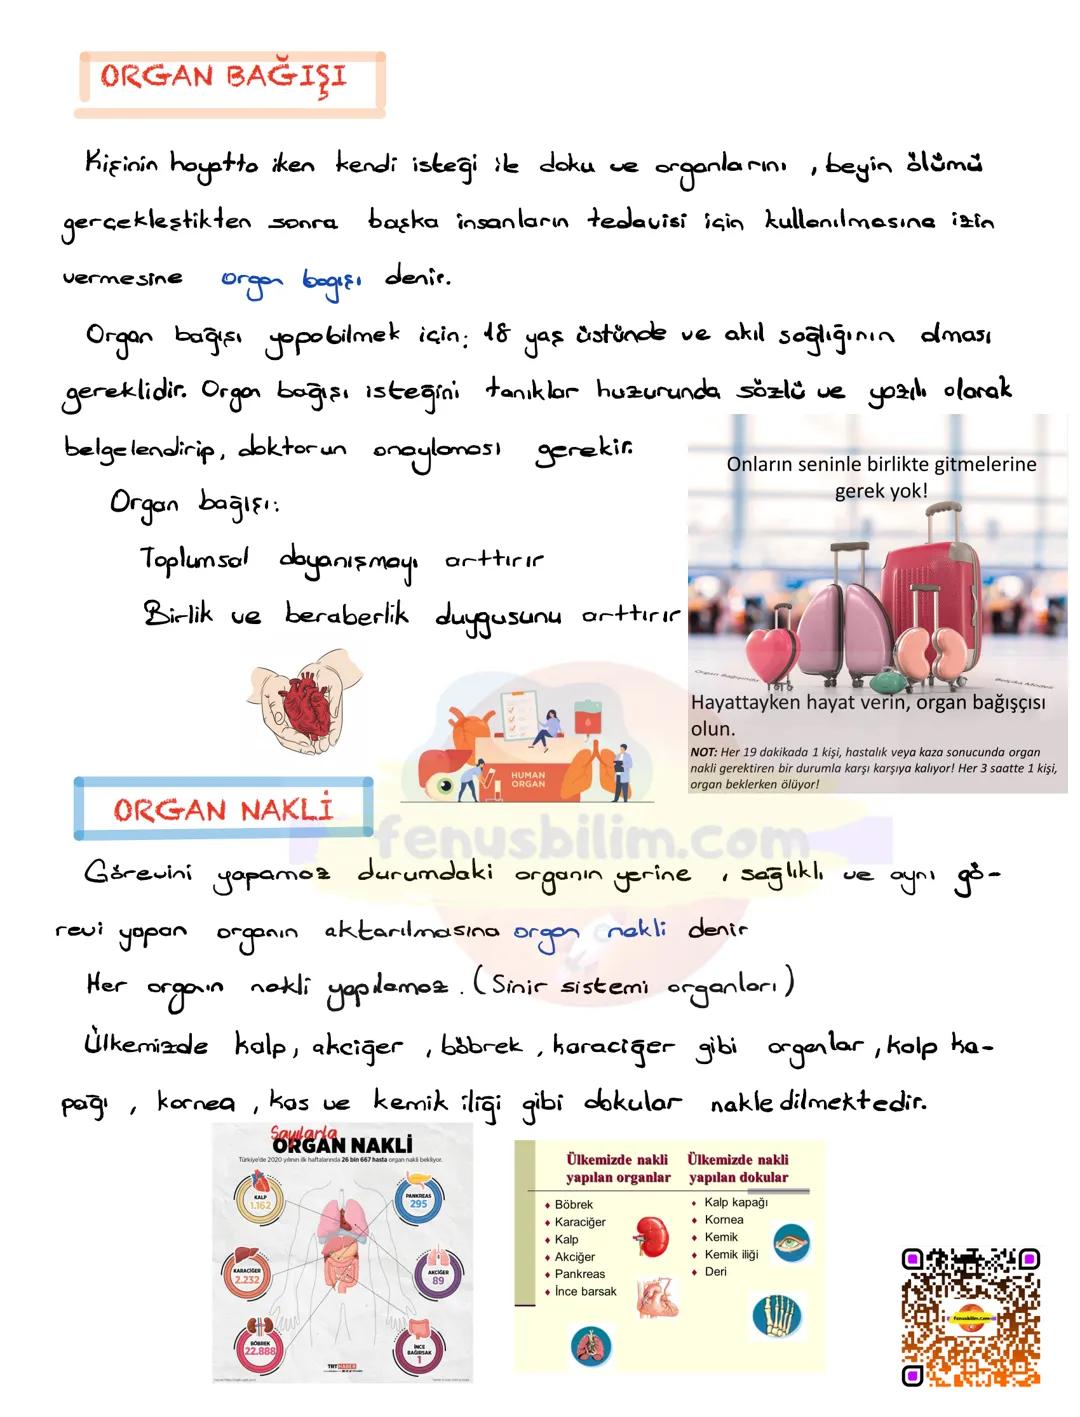 ORGAN BAĞIŞI
Kişinin hayatta iken kendi isteği ile doku ve organlarını , beyin ölümü
gerçekleştikten sonra başka insanların tedavisi için kullanılmasına izin
vermesine organ bağışı denir.
Organ bağışı yapabilmek için; 18 yaş üstünde ve akıl sağlığının olması
gereklidir. Organ bağışı isteğini tanıklar huzurunda sözlü ve yazılı olarak
belgelendirip, doktorun onaylaması gerekir.
Organ bağışı:
Toplumsal dayanışmayı arttırır
Birlik ve beraberlik duygusunu arttırır
Onların seninle birlikte gitmelerine
gerek yok!
Organ Bağışında Belçika Modeli
Hayattayken hayat verin, organ bağışçısı
olun.
NOT: Her 19 dakikada 1 kişi, hastalık veya kaza sonucunda organ
nakli gerektiren bir durumla karşı karşıya kalıyor! Her 3 saatte 1 kişi,
organ beklerken ölüyor!
HUMAN
ORGAN
fenusbilim.com
ORGAN NAKLİ
Görevini yapamaz durumdaki organın yerine , sağlıklı ve aynı gö-
revi yapan organın aktarılmasına organ nakli denir
Her organın nakli yapılamaz. (Sinir sistemi organları)
Ülkemizde kalp, akciğer , böbrek , karaciğer gibi organlar , kalp ka-
pağı , kornea , kas ve kemik iliği gibi dokular nakledilmektedir.
Sayılarla
ORGAN NAKLİ
Türkiye'de 2020 yılının ilk haftalarında 26 bin 667 hasta organ nakli bekliyor.
KALP
1.162
PANKREAS
295
KARACİĞER
2.232
AKCİĞER
89
BÖBREK
22.888
İNCE
BAĞIRSAK
1
TRT HABER
Ülkemizde nakli
yapılan organlar
Böbrek
Karaciğer
Kalp
Akciğer
Pankreas
İnce barsak
Ülkemizde nakli
yapılan dokular
Kalp kapağı
Kornea
Kemik
Kemik iliği
Deri
fenusbilim.com